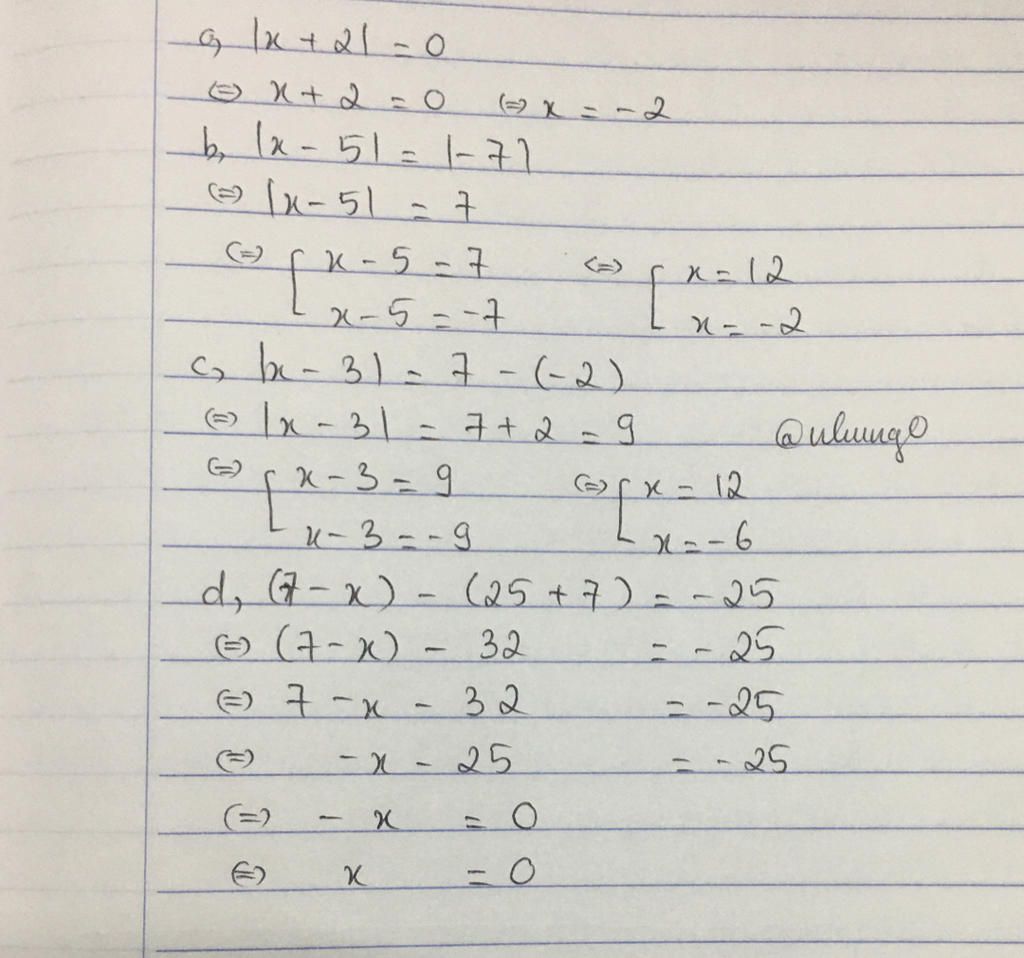 a, |x + 2| = 0
(=) x + 2 = 0 (=) x = -2
b, |x - 5| = |-7|
(=) |x - 5| = 7
(=) [ x - 5 = 7 (=) [ x = 12
x - 5 = -7 x = -2
c, |x - 3| = 7 - (-2)
(=) |x - 3| = 7 + 2 = 9
(=) [ x - 3 = 9 (=) [ x = 12
x - 3 = -9 x = -6
d, (7 - x) - (25 + 7) = -25
(=) (7 - x) - 32 = -25
(=) 7 - x - 32 = -25
(=) -x - 25 = -25
(=) - x = 0
(=) x = 0